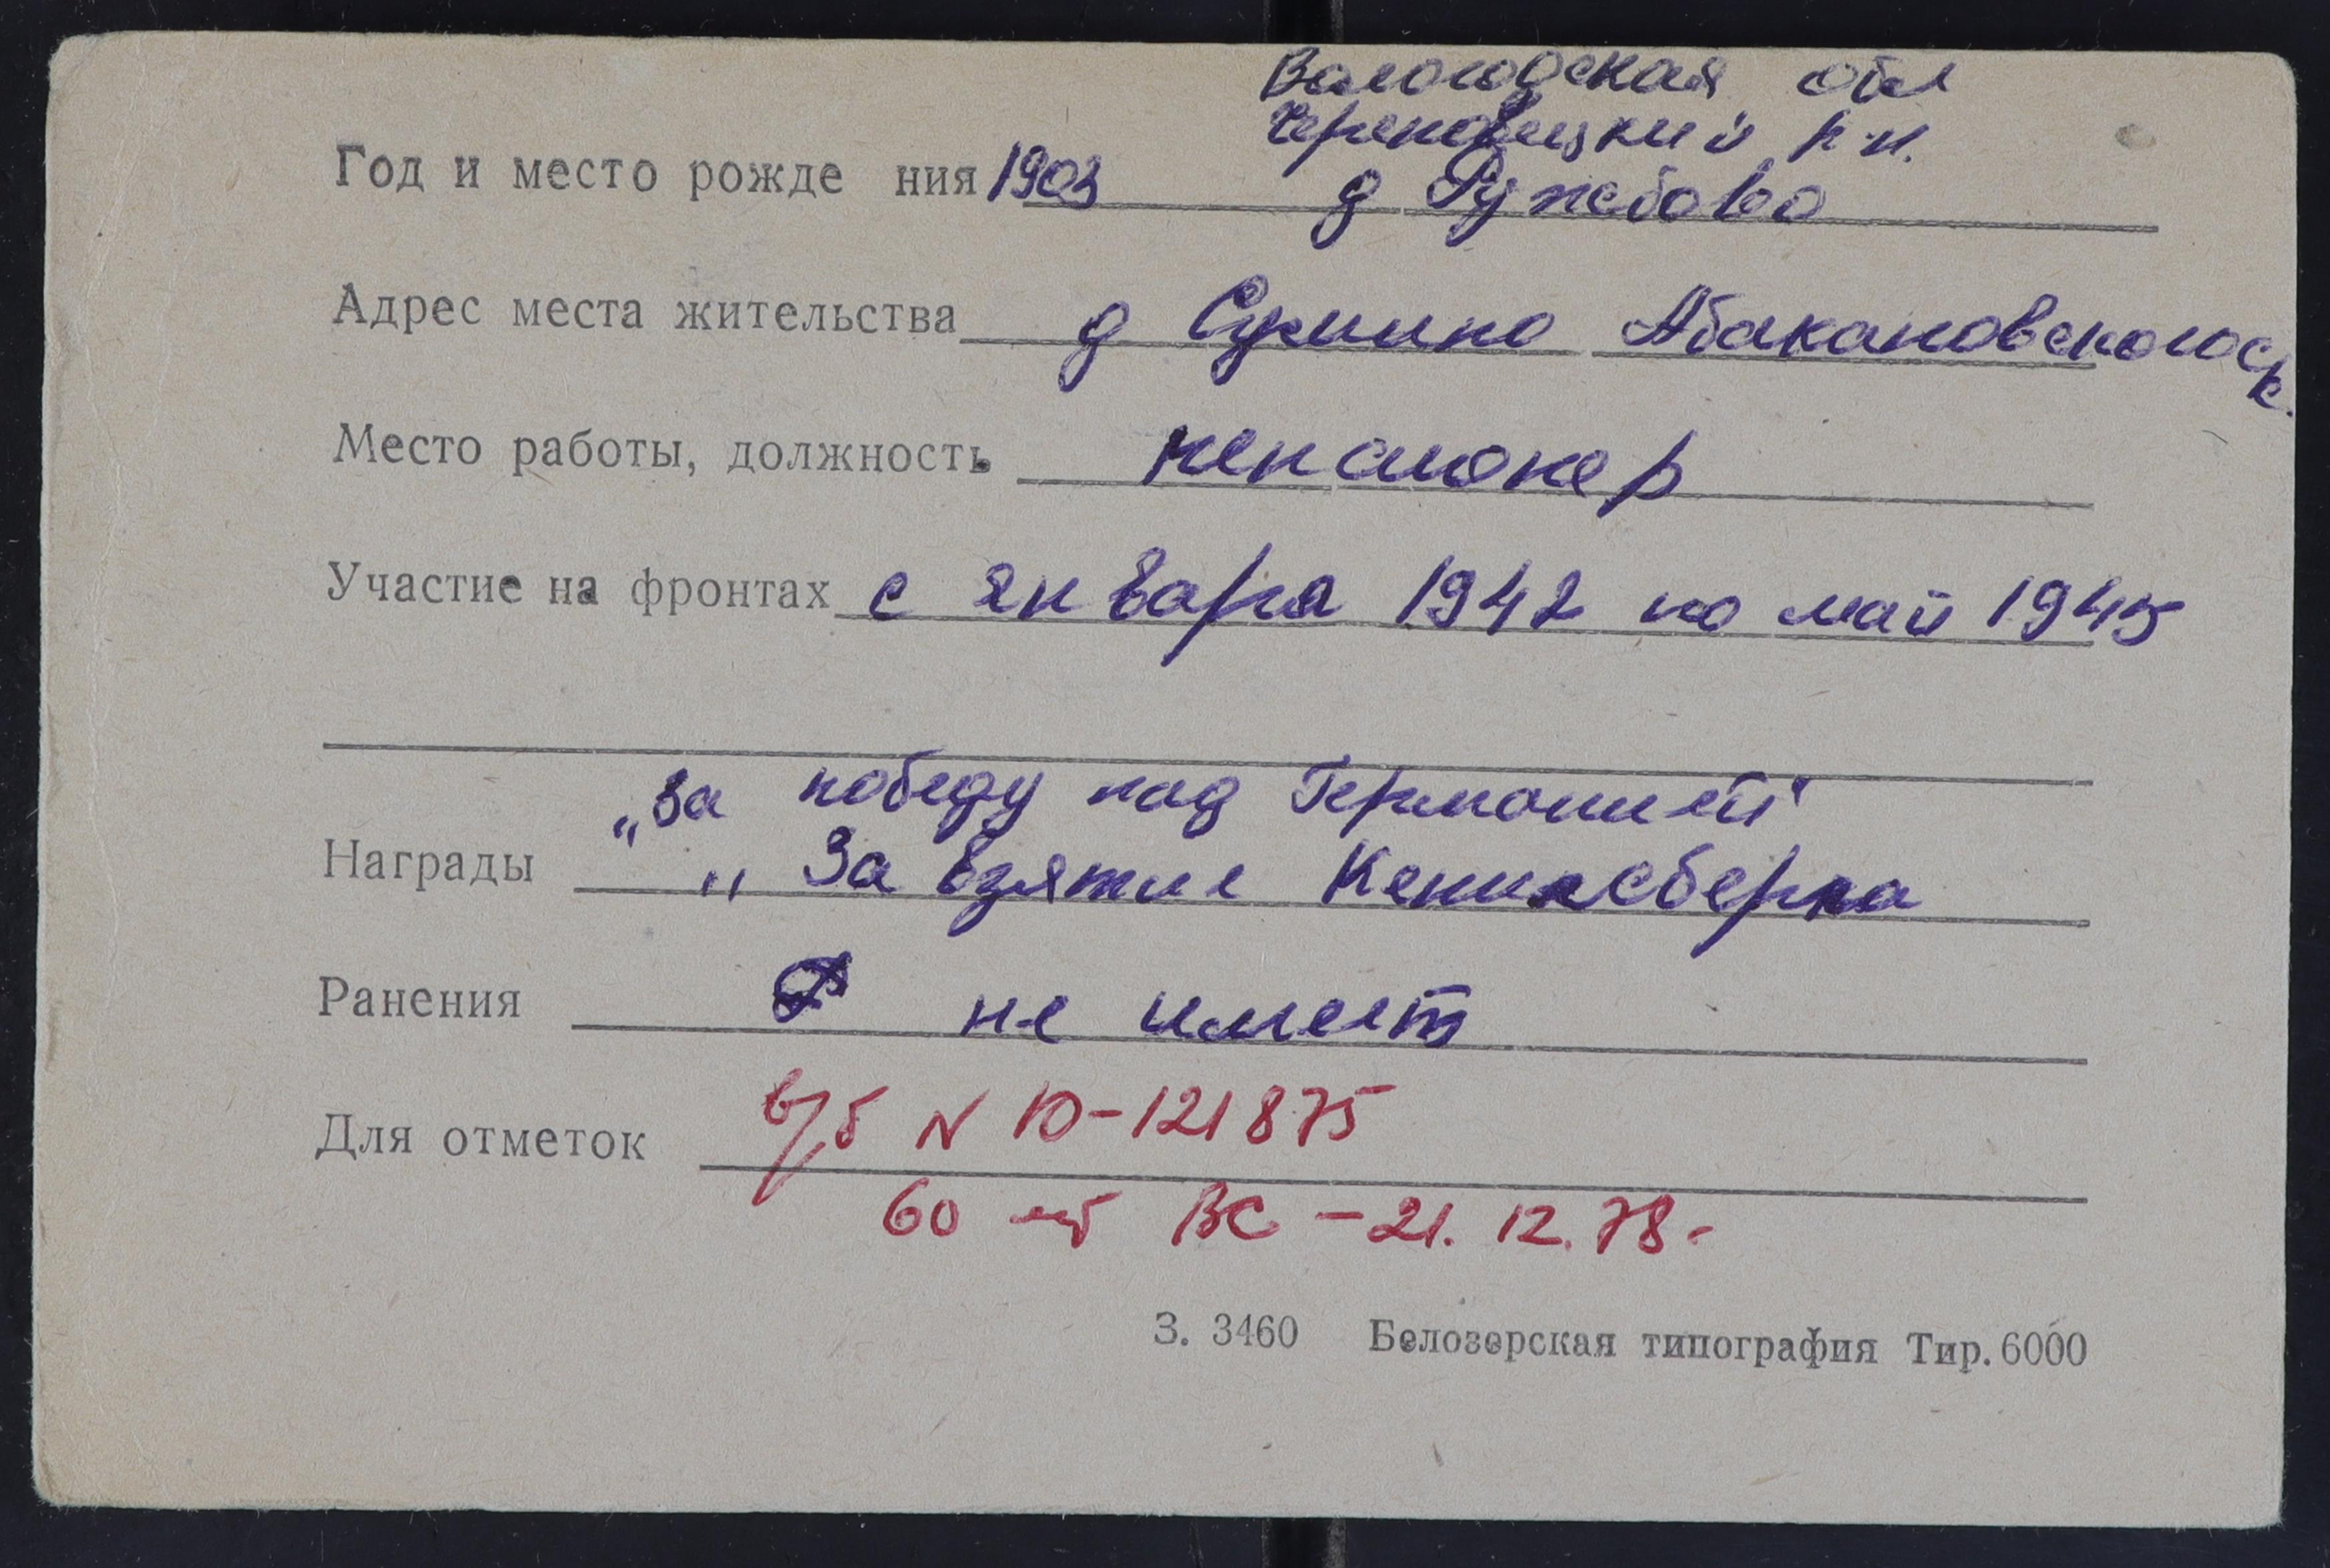 Вологодская обл
Череповецкий р-н.
Год и место рожде ния 1903 д Ружбово
Адрес места жительства д Сумино Абакановского с/с.
Место работы, должность пенсионер
Участие на фронтах с января 1942 по май 1945
„За победу над Германией"
Награды „ За взятие Кенигсберга
Ранения не имеет
Для отметок в/б N Ю-121875
60 лет ВС - 21. 12. 78.
З. 3460 Белозерская типография Тир. 6000